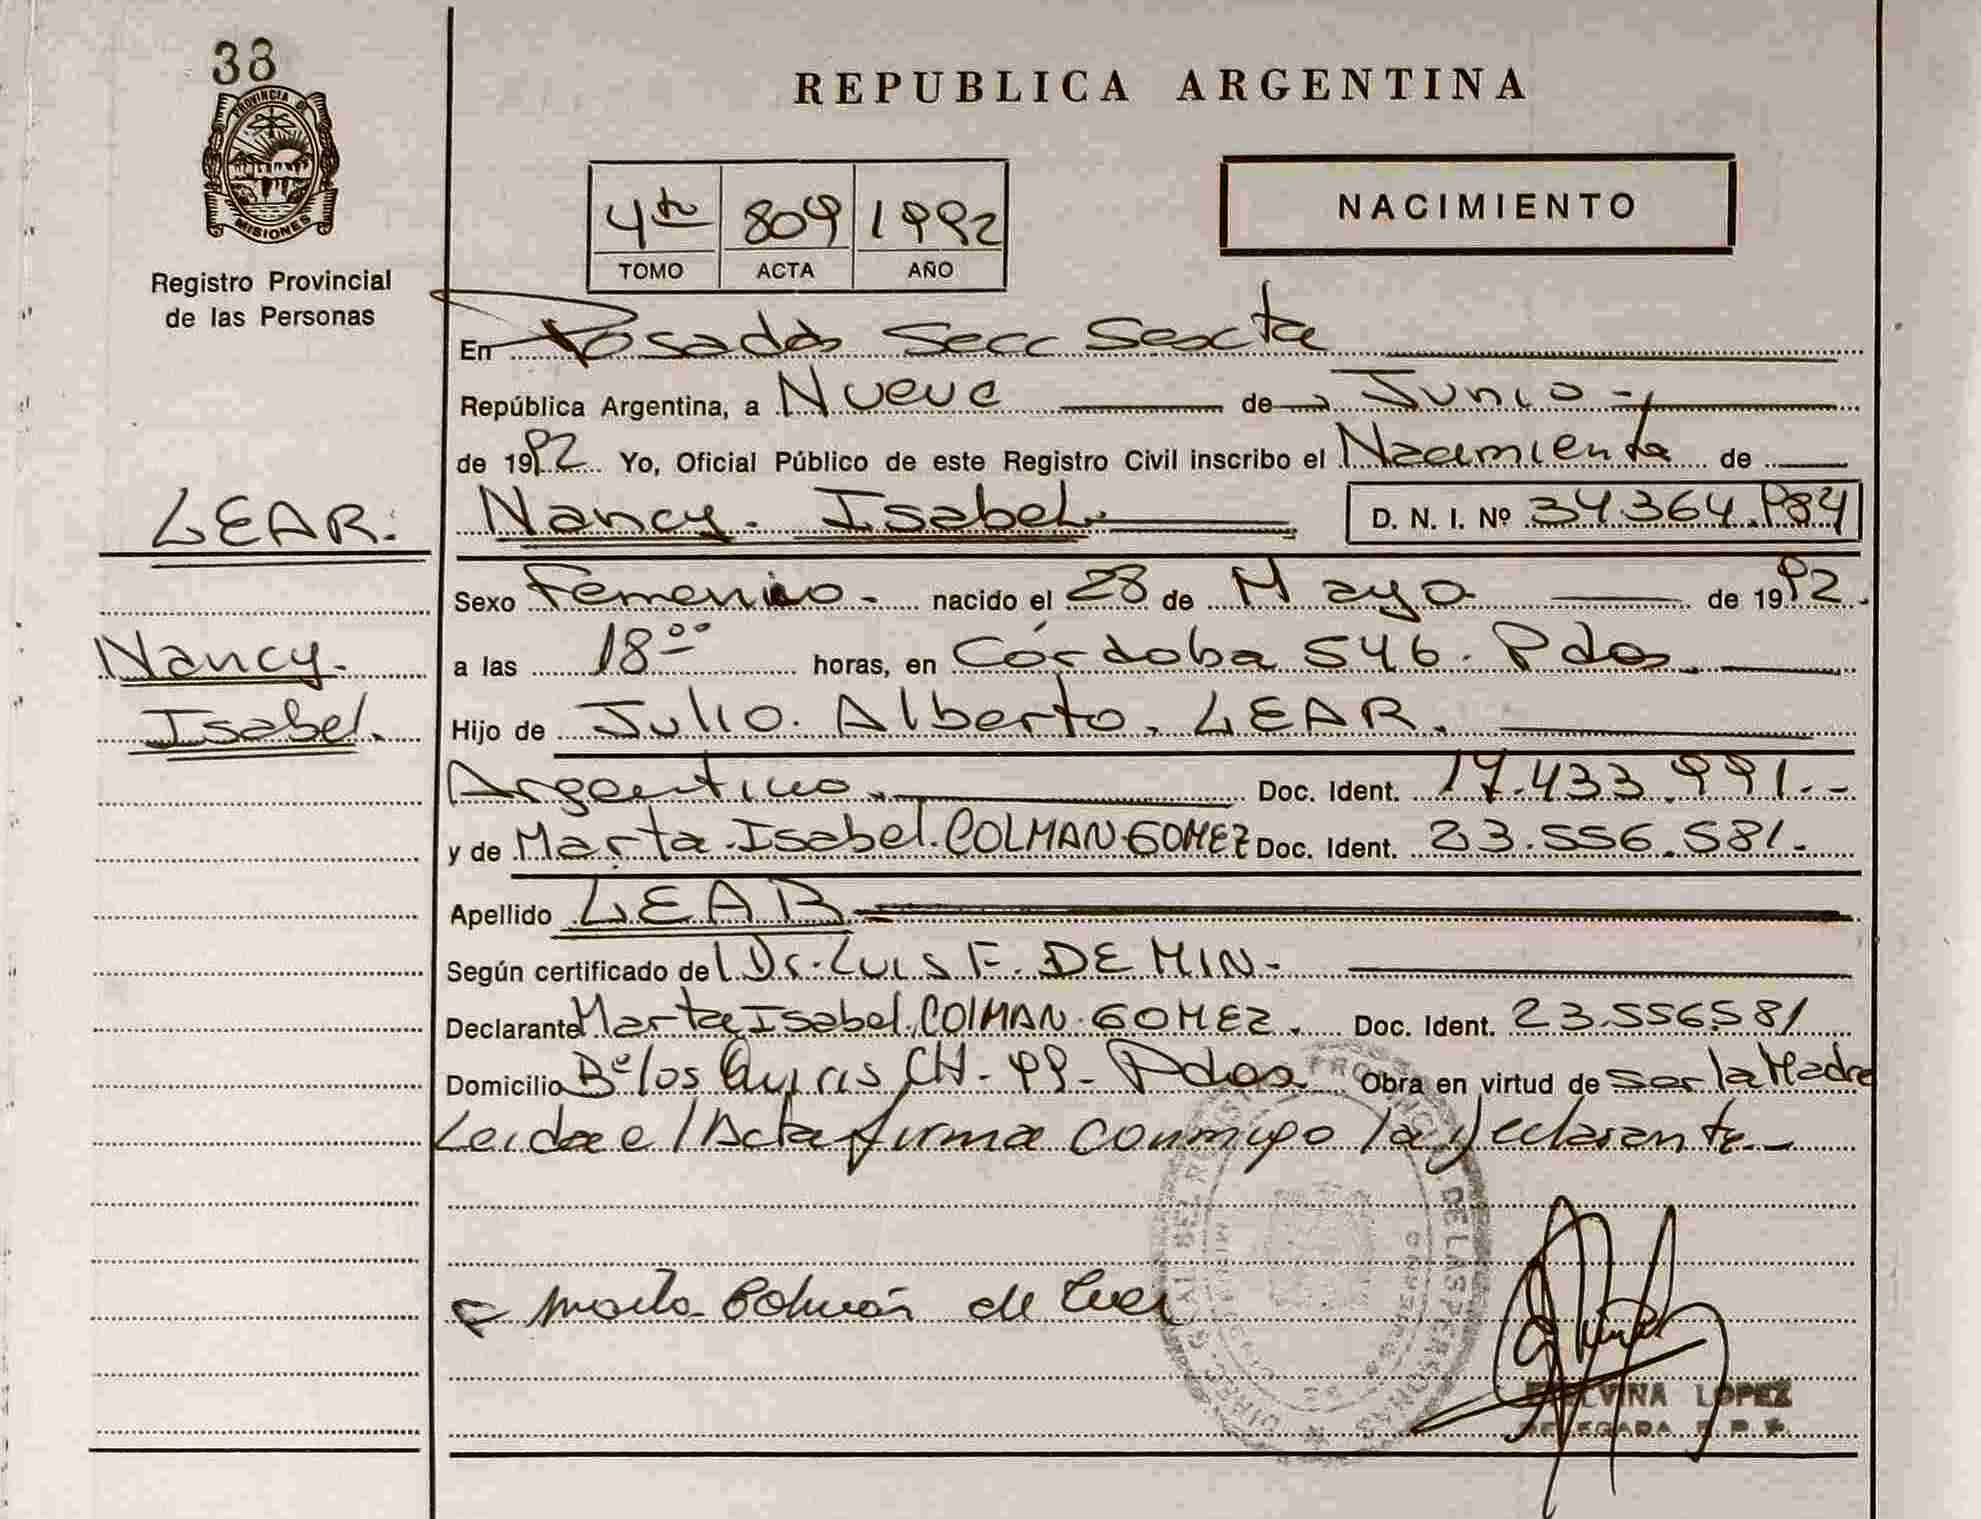 38
PROVINCIA DE
MISIONES
Registro Provincial
de las Personas
REPUBLICA ARGENTINA
4to 809 1992
TOMO ACTA AÑO
NACIMIENTO
En Posadas Secc Sexta
República Argentina, a Nueve de Junio
de 1992 Yo, Oficial Público de este Registro Civil inscribo el Nacimiento de
LEAR. Nancy. Isabel. D. N. I. Nº 34.364.984
Sexo Femenino nacido el 28 de Mayo de 1992.
Nancy. a las 18ºº horas, en Córdoba 546. Pdas
Isabel. Hijo de Julio. Alberto. LEAR.
Argentino. Doc. Ident. 17.433.991.--
y de Marta.Isabel.COLMAN.GOMEZ Doc. Ident. 23.556.581.-
Apellido LEAR
Según certificado de Dr. LUIS F. DE MIN.-
Declarante Marta Isabel.COLMAN.GOMEZ. Doc. Ident. 23.556581
Domicilio Bº los CH- 99- Pdas Obra en virtud de ser la Madre
Leida el Acta firma conmigo la declarante.-
de
DE LAS PERSONAS
LOPEZ
DELEGADA R. P.